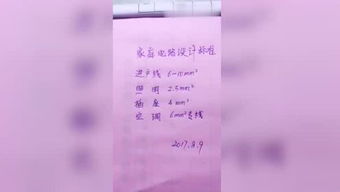 家庭电路设计标准
进户线 6-10mm²
照明 2.5mm²
插座 4mm²
空调 6mm²专线
2017.8.9